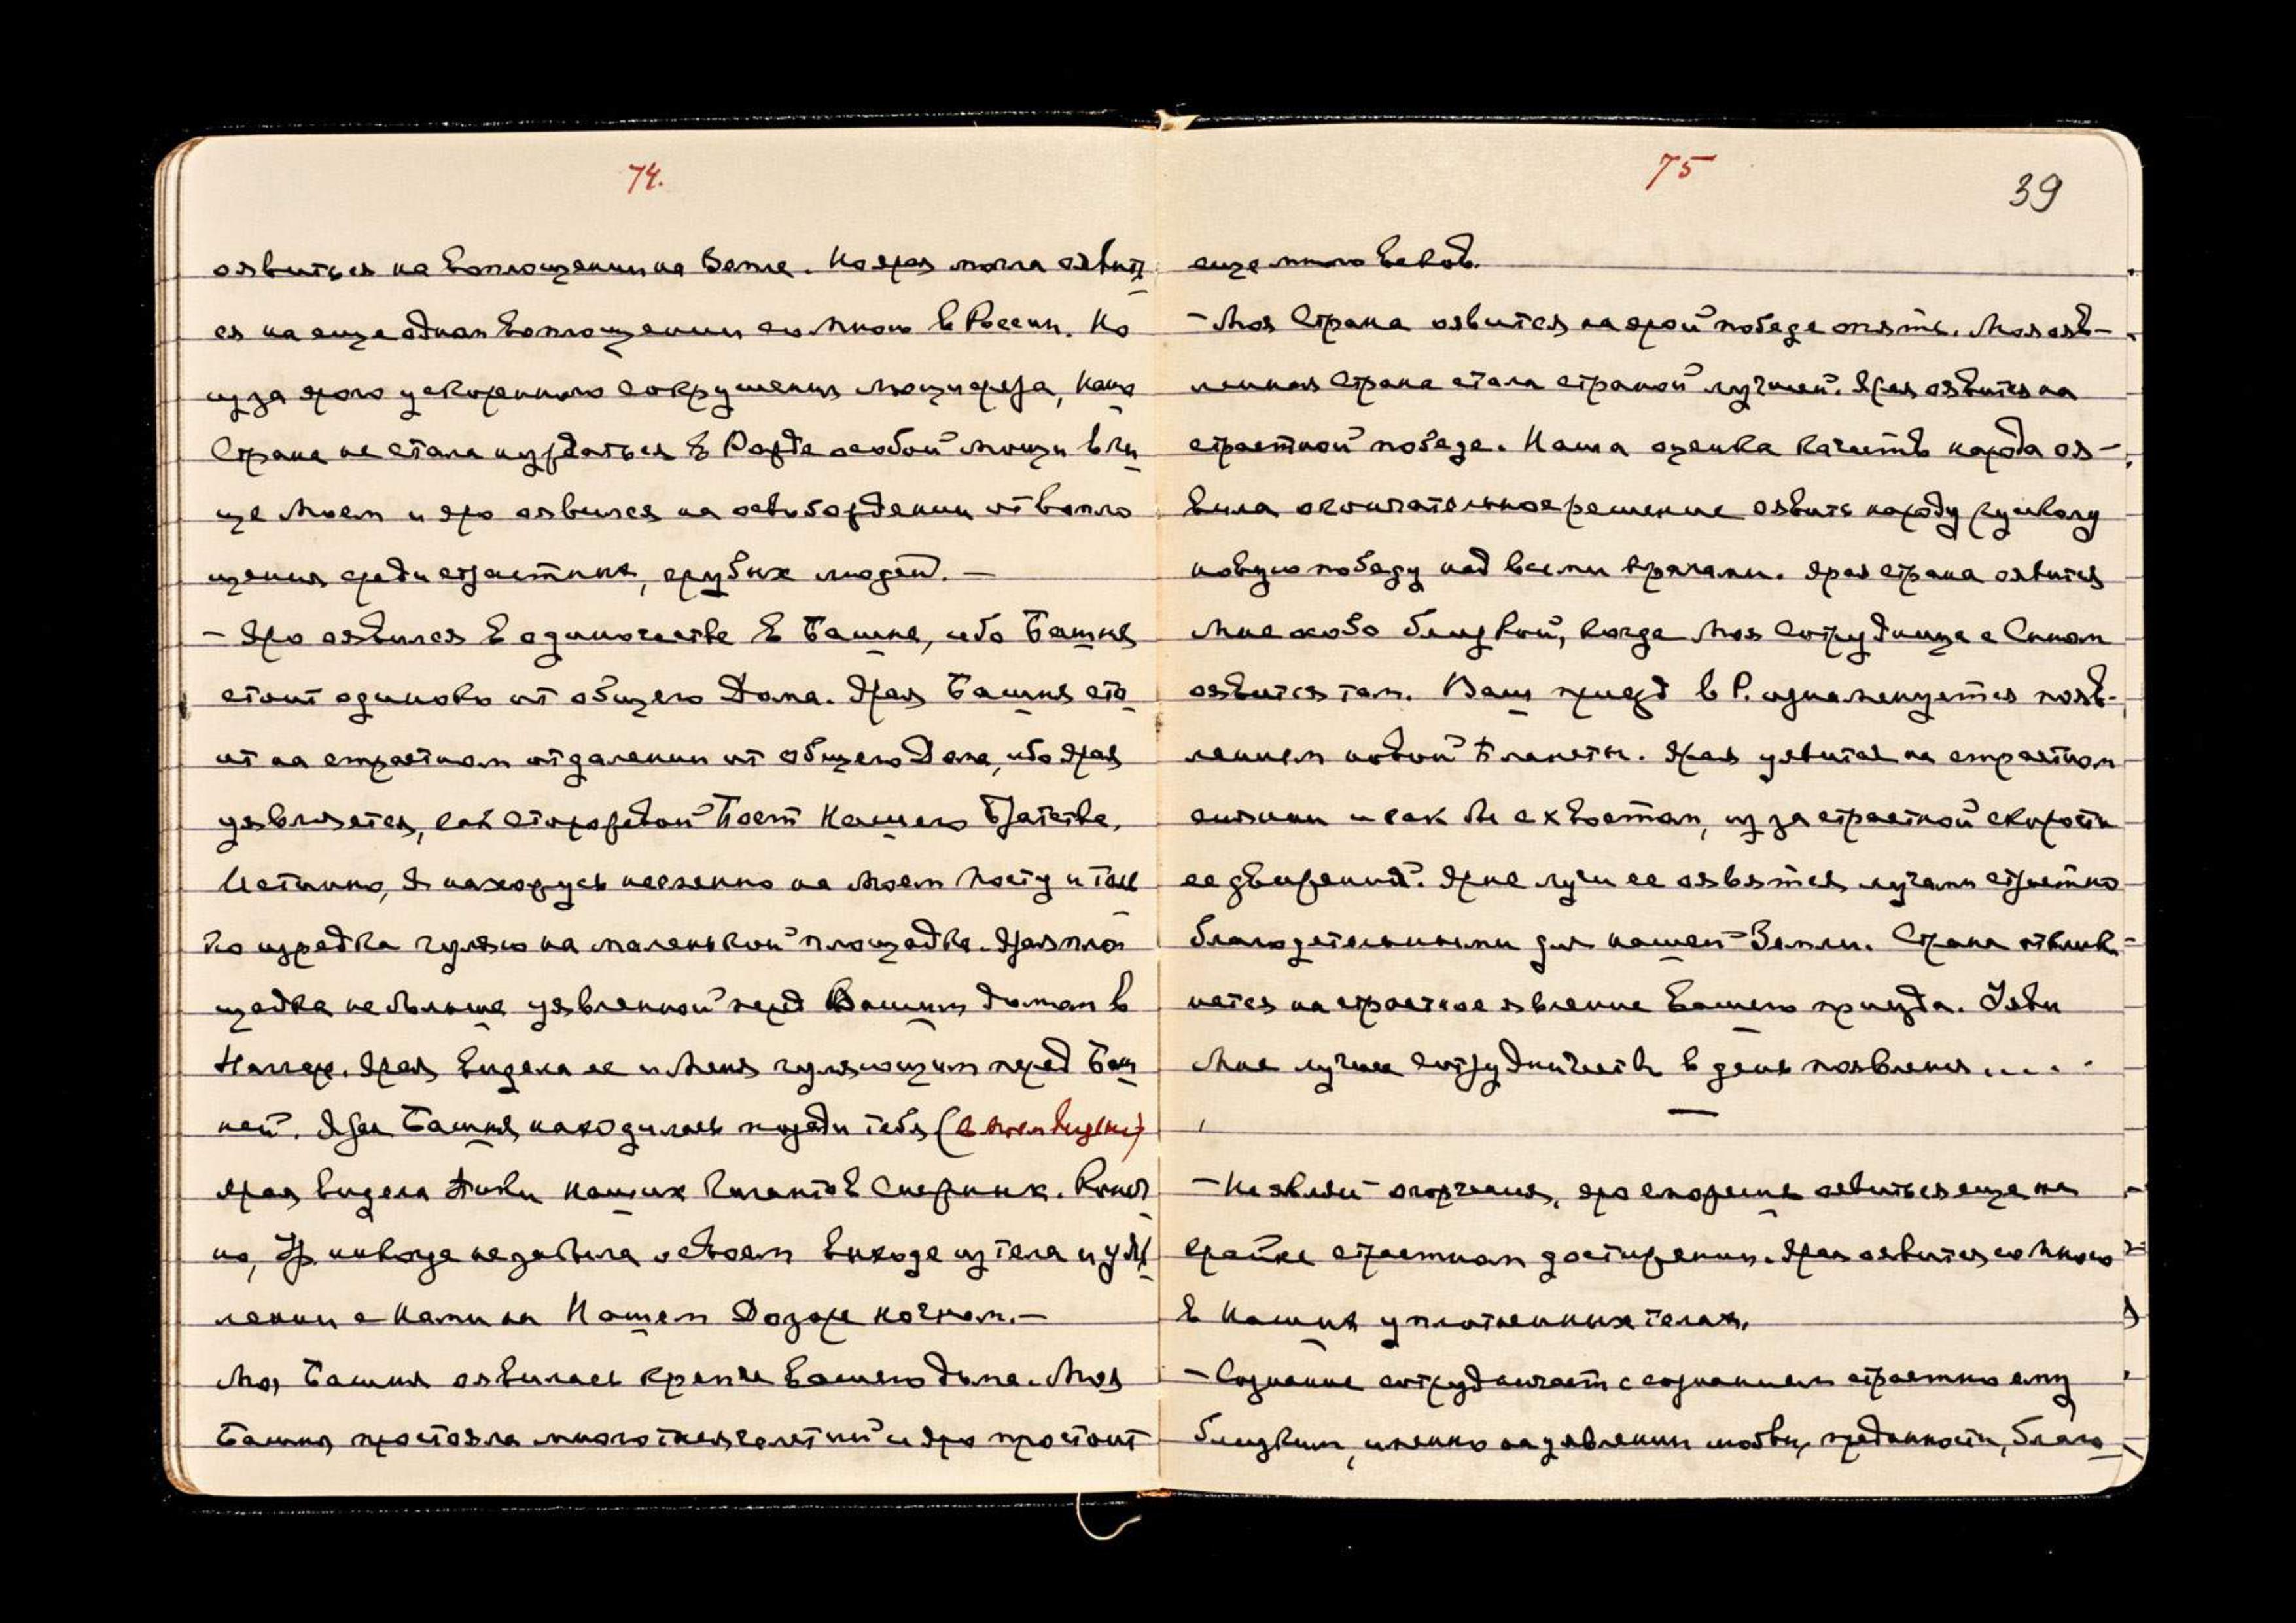 74.
оявиться на воплощении на Земле. Но ярая могла оявить
ся на еще одном воплощении со Мною в России. Но
из за ярого ускоренного сокрушения Люцифера, Наша
Страна не стала нуждаться в Вожде особой мощи в Ли
це Моем и яро оявился на освобождении от вопло
щения среди страстных, грубых людей. —
— Яро оявился в одиночестве в Башне, ибо Башня
стоит одиноко от общего Дома. Ярая Башня сто
ит на страстном отдалении от общего Дома, ибо ярая
уявляется, как сторожевой Пост Нашего Братства.
Истинно, Я нахожусь неизменно на Моем Посту и толь
ко изредка гуляю на маленькой площадке. Ярая пло
щадка не больше уявленной перед Вашим домом в
Наггаре. Ярая видела ее и Меня гуляющим перед Баш
ней. Ярая Башня находилась позади тебя (в том видении)
Ярая видела Тиви Наших Гигантов Снежных. Конеч
но, Ур. никогда не забыла о своем выходе из тела и уяв
лении с Нами на Нашем Дозоре ночном. —
Моя Башня оявилась крепче Вашего дома. Моя
Башня простояла много тысячелетий и яро простоит
75
39
еще много веков.
— Моя Страна оявится на ярой победе опять. Моя ояв-
ленная Страна стала страной лучшей. Ярая оявится на
страстной победе. Наша оценка качеств народа оя-
вила окончательное решение оявить народу русскому
новую победу над всеми врагами. Ярая страна оявится
Мне особо близкой, когда Моя Сотрудница с Сыном
оявится там. Ваш приезд в Р. ознаменуется появ-
лением новой Планеты. Ярая уявится на страстном
сиянии и как бы с хвостом, из за страстной скорости
ее движений. Ярые лучи ее оявятся лучами страстно
благодетельными для нашей Земли. Страна отклик-
нется на страстное явление Вашего приезда. Уяви
Мне лучшее сотрудничество в день появления....
— Не являй огорчения, яро сможешь оявиться еще на
крайне страстном достижении. Ярая оявится со Мною
в Наших уплотненных телах.
— Сознание сотрудничает с сознанием страстно ему
близким, именно на уявлении любви, преданности, благо